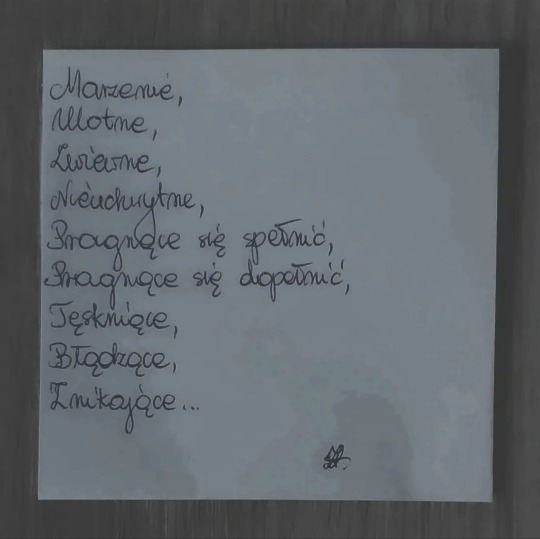 Marzenie,
Ulotne,
Zwiewne,
Nieuchwytne,
Pragnące się spełnić,
Pragnące się dopełnić,
Tęskniące,
Błądzące,
Znikające...